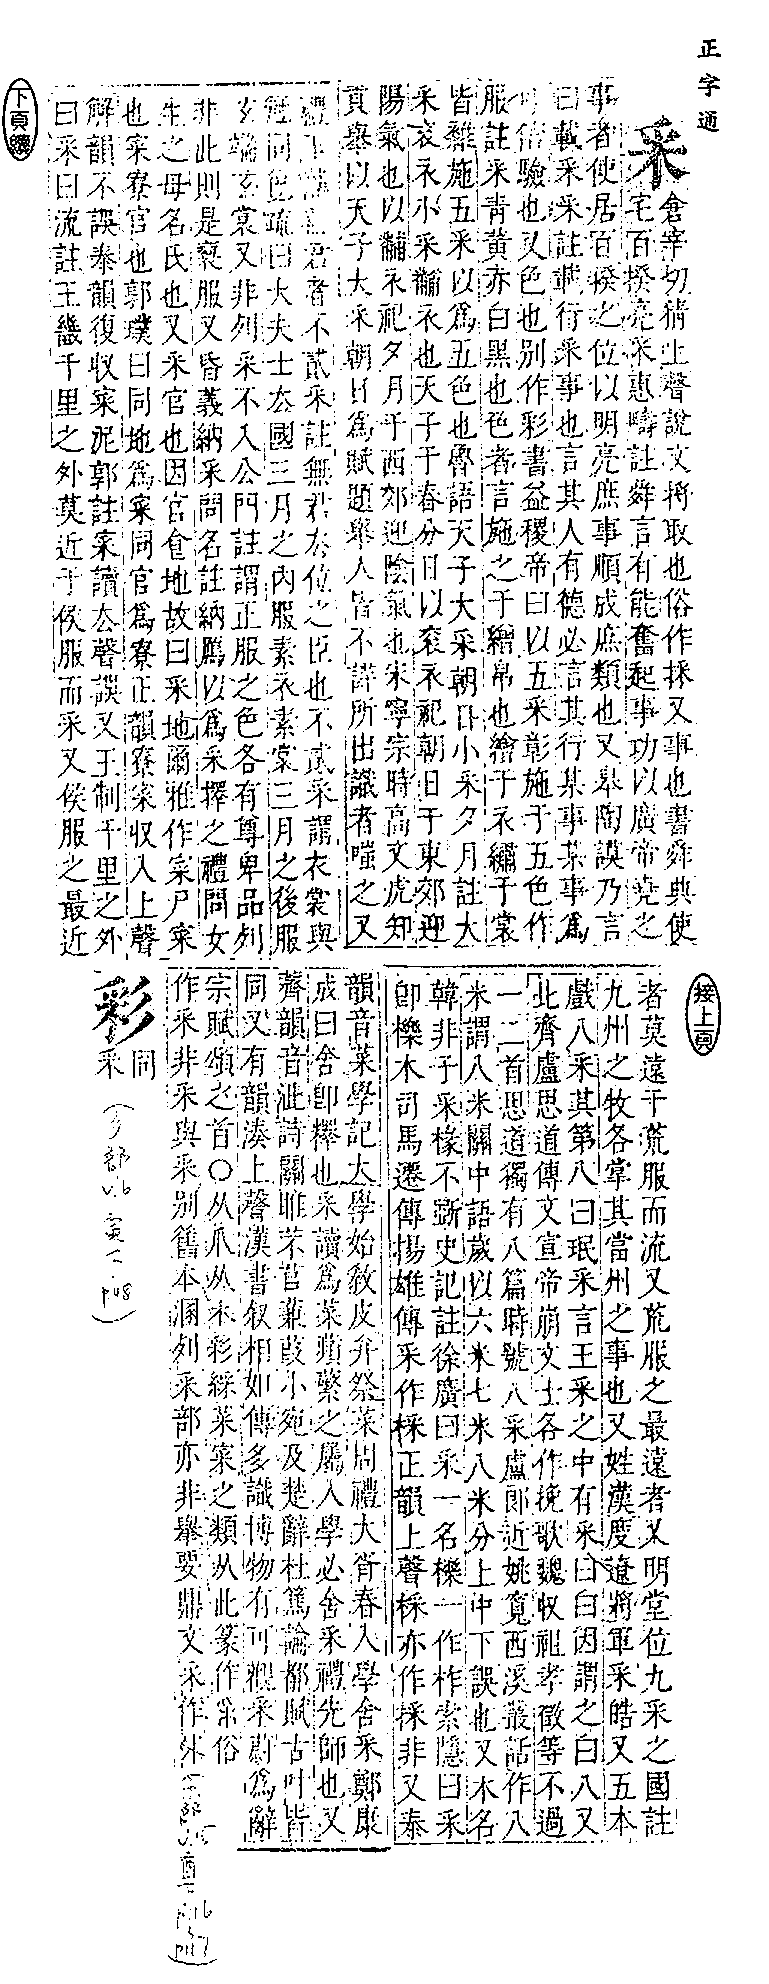 正字通
采
倉宰切猜上聲說文捋取也俗作採又事也書舜典使
宅百揆亮采惠疇註舜言有能奮起事功以廣帝堯之
事者使居百揆之位以明亮庶事順成庶類也又皋陶謨乃言
曰載采采註載行采事也言其人有德必言其行某事某事爲
可信驗也又色也別作彩書益稷帝曰以五采彰施于五色作
服註采青黃赤白黑也色者言施之于繒帛也繪于衣繡于裳
皆雜施五采以爲五色也魯語天子大采朝日小采夕月註大
采袞衣小采黼衣也天子于春分日以袞衣祀朝日于東郊迎
陽氣也以黼衣祀夕月于西郊迎陰氣也宋寧宗時高文虎知
貢舉以天子大采朝日爲賦題舉人皆不詳所出識者嗤之又
君者不貳采註無君去位之臣也不貳采謂衣裳與
冠同色疏曰大夫士去國三月之內服素衣素裳三月之後服
玄端玄裳又非列采不入公門註謂正服之色各有尊卑品列
非此則是褻服又昏義納采問名註納鴈以爲采擇之禮問女
生之母名氏也又采官也因官食地故曰采地爾雅作寀尸寀
也寀寮官也郭璞曰同地爲寀同官爲寮正韻寮寀收入上聲
解韻不誤泰韻復收寀泥郭註寀讀去聲誤又王制千里之外
曰采曰流註王畿千里之外莫近于侯服而采又侯服之最近
下頁續
接上頁
者莫遠于荒服而流又荒服之最遠者又明堂位九采之國註
九州之牧各掌其當州之事也又姓漢度遼將軍采皓又五木
戲八采其第八曰珉采言王采之中有采曰白因謂之白八又
北齊盧思道傳文宣帝崩文士各作挽歌魏收祖孝徵等不過
一二首思道獨有八篇時號八采盧郎近姚寬西溪叢話作八
米謂八米關中語歲以六米七米八米分上中下誤也又木名
韓非子采椽不斲史記註徐廣曰采一名櫟一作柞索隱曰采
卽櫟木司馬遷傳揚雄傳采作棌正韻上聲棌亦作採非又泰
韻音菜學記大學始敎皮弁祭菜周禮大胥春入學舍采鄭康
成曰舍卽釋也采讀爲菜蘋蘩之屬入學必舍采禮先師也又
薺韻音泚詩關雎芣苢蒹葭小宛及楚辭杜篤論都賦古叶皆
同又有韻湊上聲漢書叙相如傳多識博物有可觀采蔚爲辭
宗賦頌之首〇从爪从木彩綵菜寀之類从此篆作俗
作釆非采與釆別舊本溷列釆部亦非舉要鼎文采作
彩
同
采
(彡部
p48)